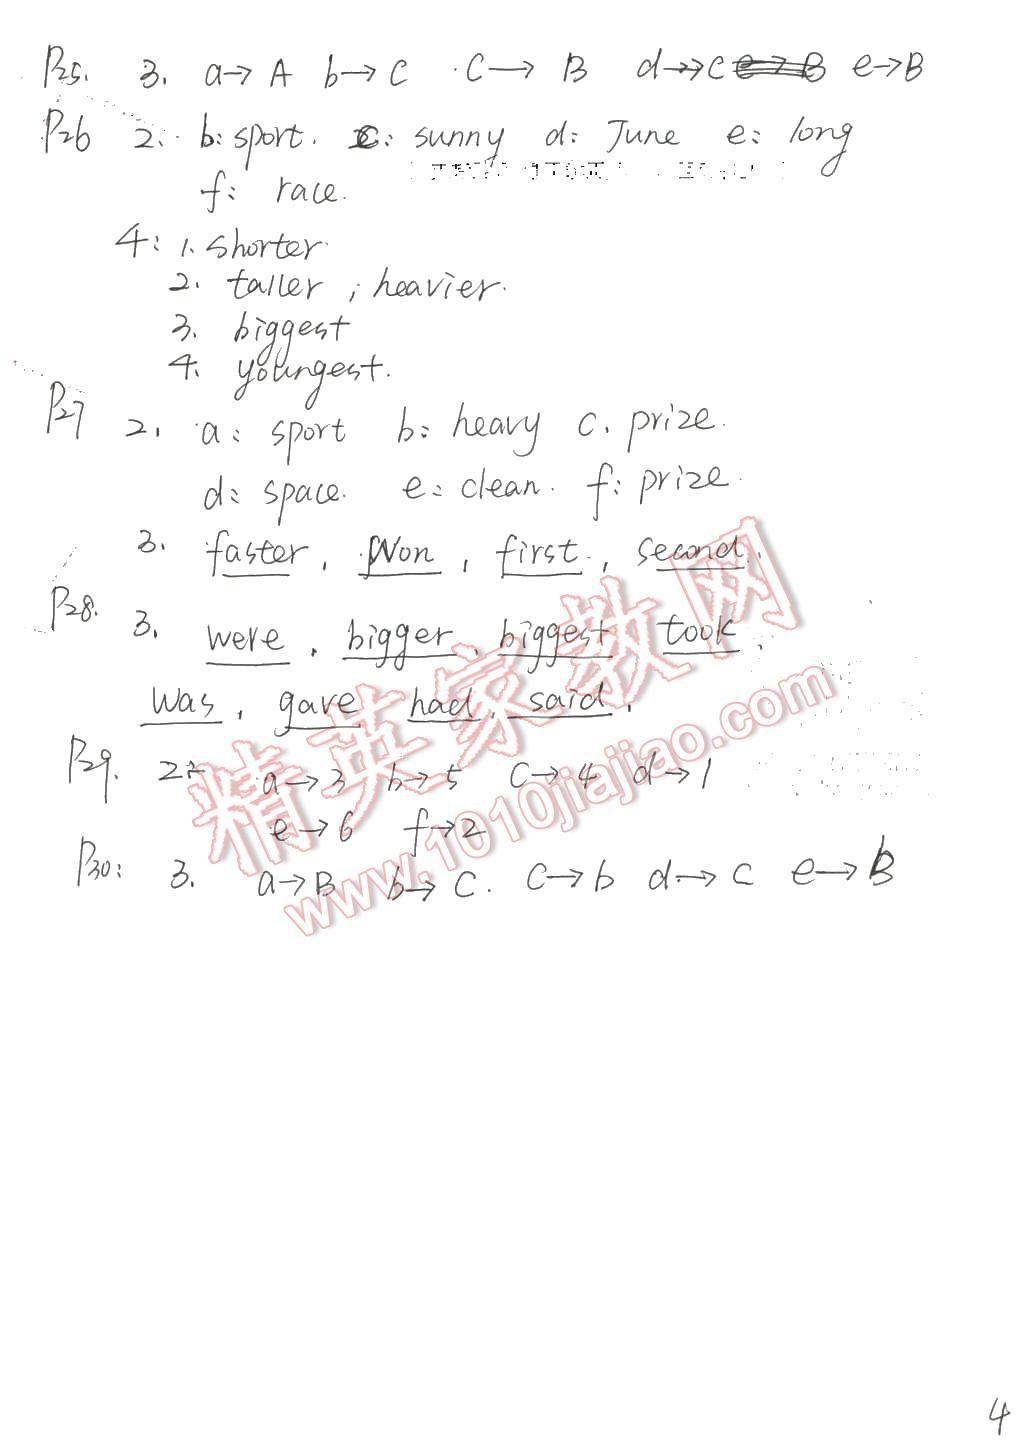 P25. 3. a→A b→C C→B d→c e→B
P26 2. b: sport. c: sunny d: June e: long
f: race.
4: 1. shorter
2. taller ; heavier.
3. biggest
4. youngest.
P27 2. a: sport b: heavy c. prize.
d: space. e: clean. f: prize.
3. faster, Won, first, second.
P28. 3. were, bigger, biggest took,
was, gave had, said.
P29. 2: a→3 b→5 C→4 d→1
e→6 f→2
P30: 3. a→B b→C. C→b d→C e→B
精英家教网
www.1010jiajiao.com
4